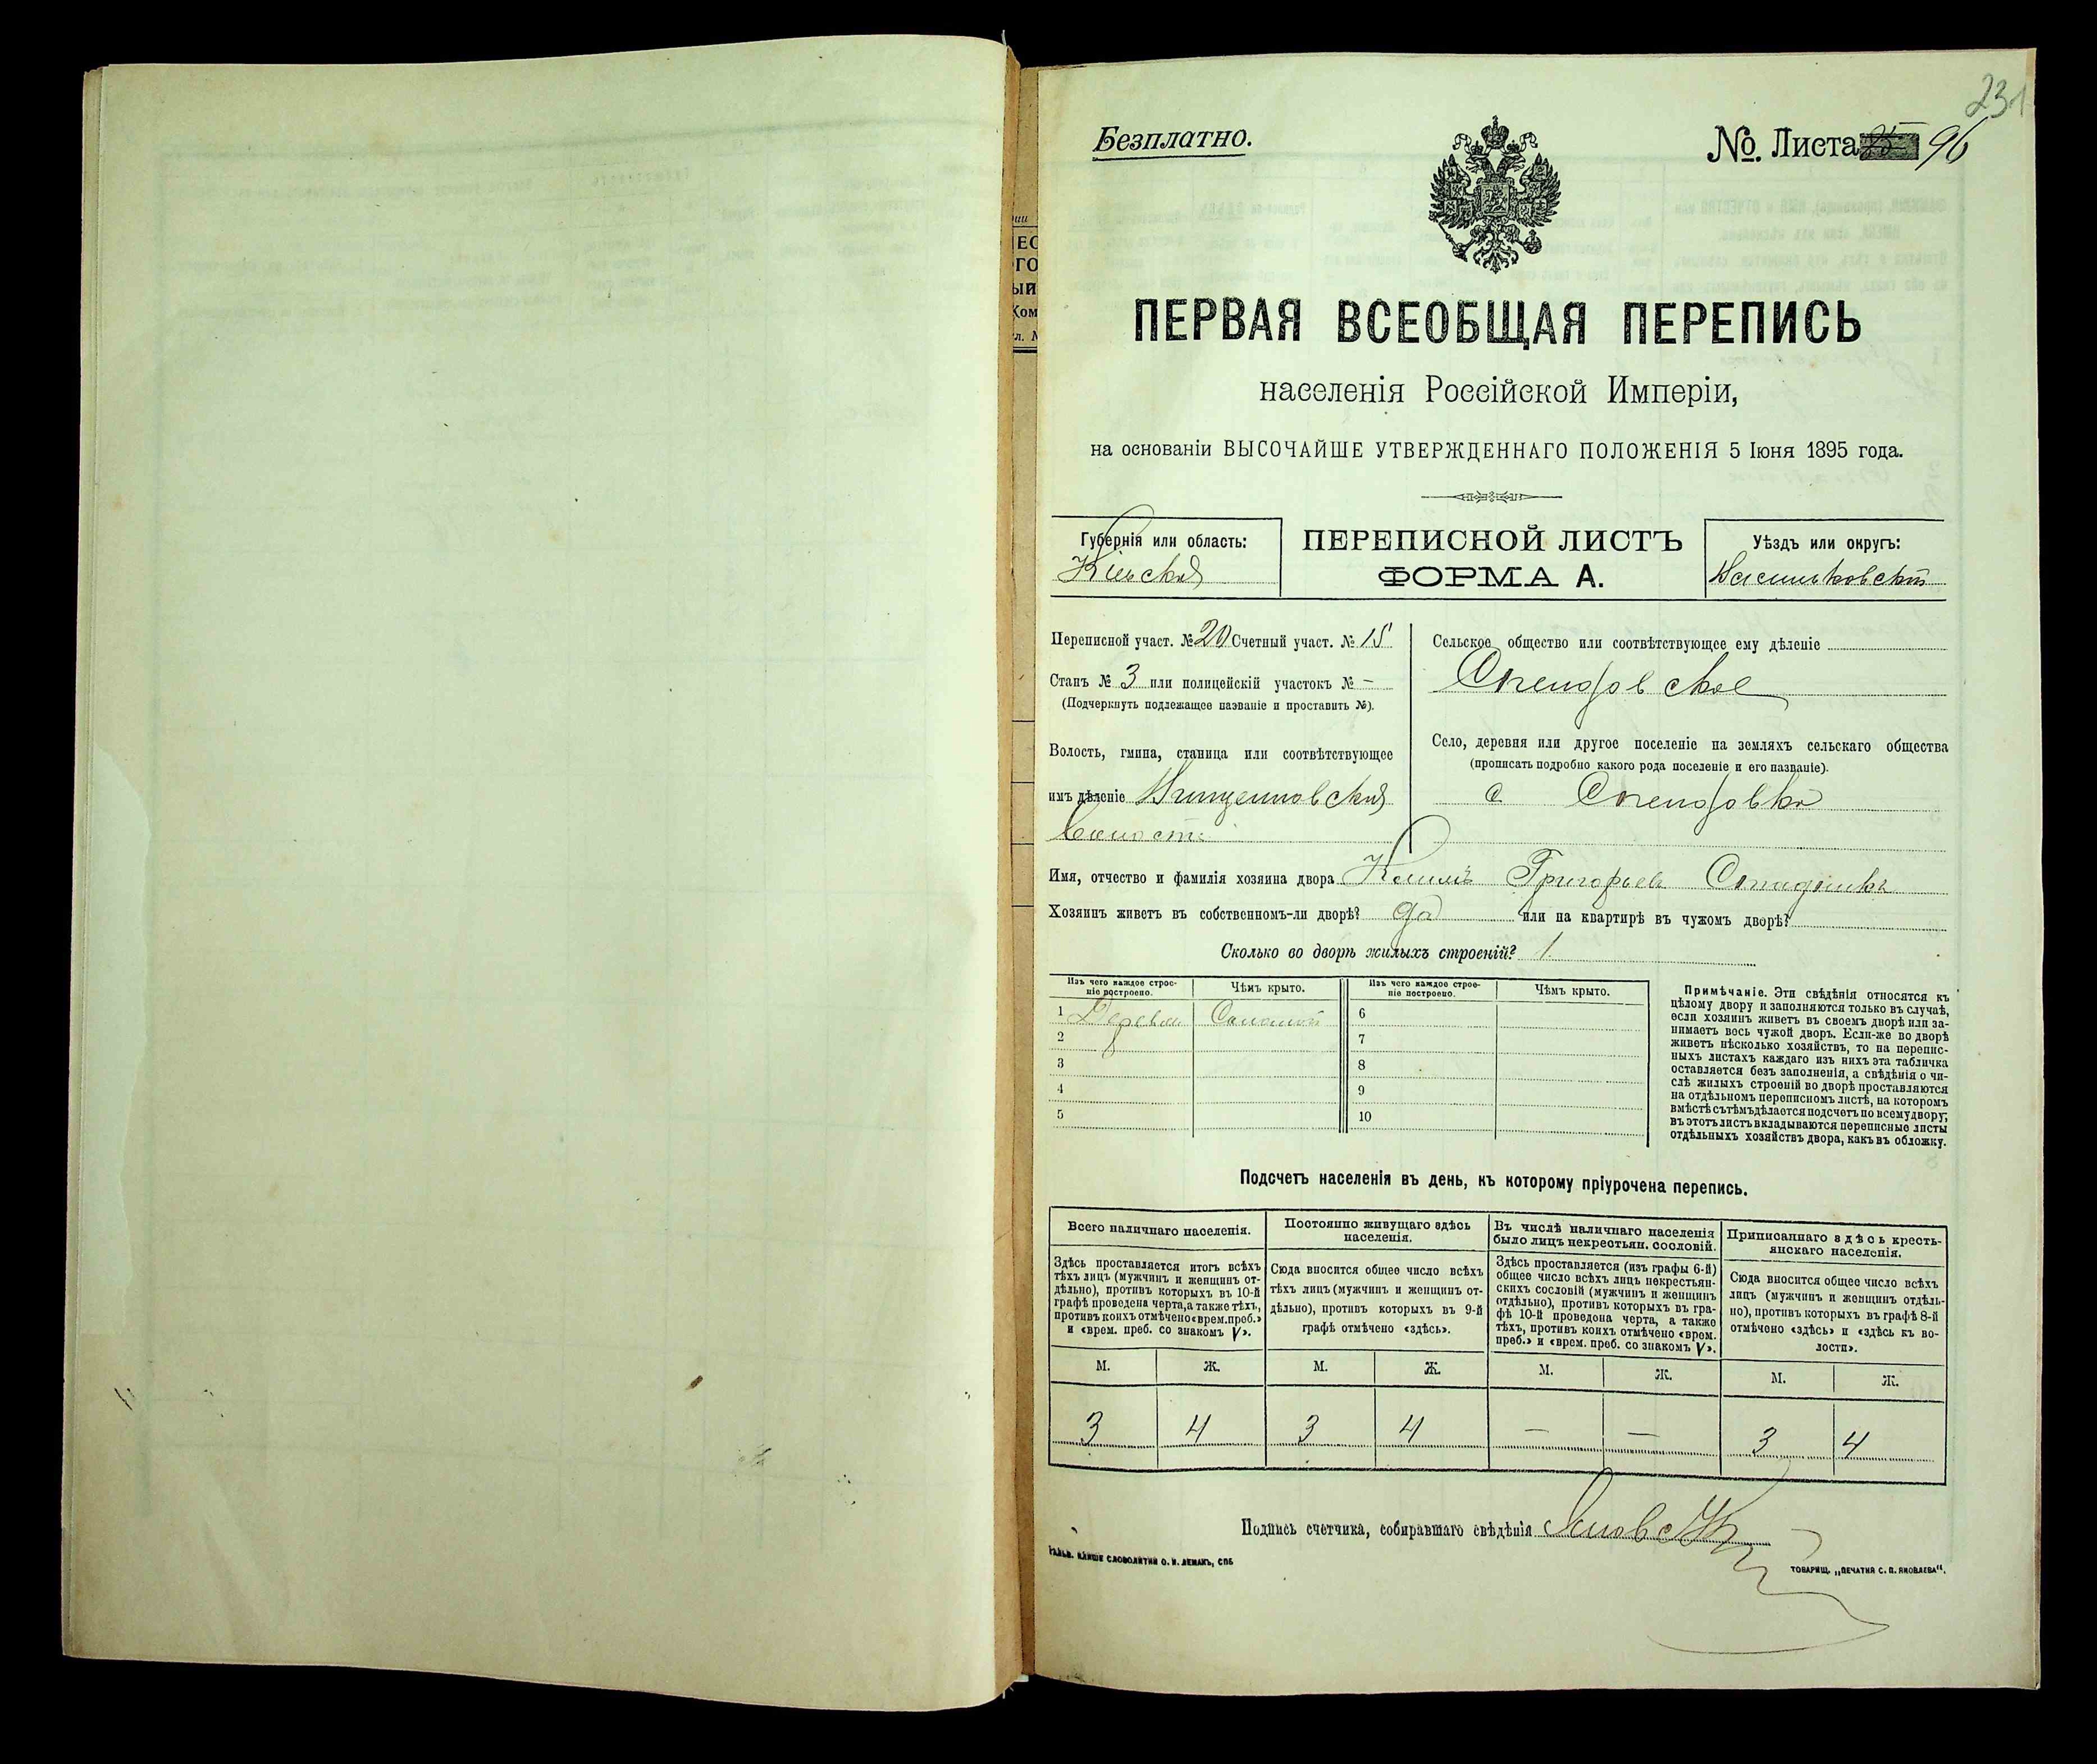 231
Безплатно.
№. Листа 96
ПЕРВАЯ ВСЕОБЩАЯ ПЕРЕПИСЬ
населенія Россійской Имперіи,
на основаніи ВЫСОЧАЙШЕ УТВЕРЖДЕННАГО ПОЛОЖЕНІЯ 5 Іюня 1895 года.
Губернія или область:
Кіевская
ПЕРЕПИСНОЙ ЛИСТЪ
ФОРМА А.
Уѣздъ или округъ:
Васильковскій
Переписной участ. № 20 Счетный участ. № 15
Станъ № 3 или полицейскій участокъ № –
(Подчеркнуть подлежащее названіе и проставить №).
Волость, гмина, станица или соотвѣтствующее
имъ дѣленіе
Волость
Сельское общество или соотвѣтствующее ему дѣленіе
Село, деревня или другое поселеніе на земляхъ сельскаго общества
(прописать подробно какого рода поселеніе и его названіе).
с
Имя, отчество и фамилія хозяина двора Григорьевъ
Хозяинъ живетъ въ собственномъ-ли дворѣ? да или на квартирѣ въ чужомъ дворѣ?
Сколько во дворѣ жилыхъ строеній? 1.
Изъ чего каждое строе-
ніе построено.
Чѣмъ крыто.
Изъ чего каждое строе-
ніе построено.
Чѣмъ крыто.
1 Дерева Соломой
2
3
4
5
6
7
8
9
10
Примѣчаніе. Эти свѣдѣнія относятся къ
цѣлому двору и заполняются только въ случаѣ,
если хозяинъ живетъ въ своемъ дворѣ или за-
нимаетъ весь чужой дворъ. Если-же во дворѣ
живетъ нѣсколько хозяйствъ, то на перепис-
ныхъ листахъ каждаго изъ нихъ эта табличка
оставляется безъ заполненія, а свѣдѣнія о чи-
слѣ жилыхъ строеній во дворѣ проставляются
на отдѣльномъ переписномъ листѣ, на которомъ
вмѣстѣ съ тѣмъ дѣлается подсчетъ по всему двору;
въ этотъ листъ вкладываются переписные листы
отдѣльныхъ хозяйствъ двора, какъ въ обложку.
Подсчетъ населенія въ день, къ которому пріурочена перепись.
Всего наличнаго населенія.
Здѣсь проставляется итогъ всѣхъ
тѣхъ лицъ (мужчинъ и женщинъ от-
дѣльно), противъ которыхъ въ 10-й
графѣ проведена черта, а также тѣхъ,
противъ коихъ отмѣчено «врем. преб.»
и «врем. преб. со знакомъ V».
Постоянно живущаго здѣсь
населенія.
Сюда вносится общее число всѣхъ
тѣхъ лицъ (мужчинъ и женщинъ от-
дѣльно), противъ которыхъ въ 9-й
графѣ отмѣчено «здѣсь».
Въ числѣ наличнаго населенія
было лицъ некрестьян. сословій.
Здѣсь проставляется (изъ графы 6-й)
общее число всѣхъ лицъ некрестьян-
скихъ сословій (мужчинъ и женщинъ
отдѣльно), противъ которыхъ въ гра-
фѣ 10-й проведена черта, а также
тѣхъ, противъ коихъ отмѣчено «врем.
преб.» и «врем. преб. со знакомъ V».
Приписаннаго здѣсь кресть-
янскаго населенія.
Сюда вносится общее число всѣхъ
лицъ (мужчинъ и женщинъ отдѣль-
но), противъ которыхъ въ графѣ 8-й
отмѣчено «здѣсь» и «здѣсь къ во-
лости».
М. Ж. М. Ж. М. Ж. М. Ж.
3 4 3 4 — — 3 4
Подпись счетчика, собиравшаго свѣдѣнія
ГАЛЬВ. КЛИШЕ СЛОВОЛИТНИ О. И. ЛЕМАНЪ, СПБ
ТОВАРИЩ. „ПЕЧАТНЯ С. П. ЯКОВЛЕВА“.